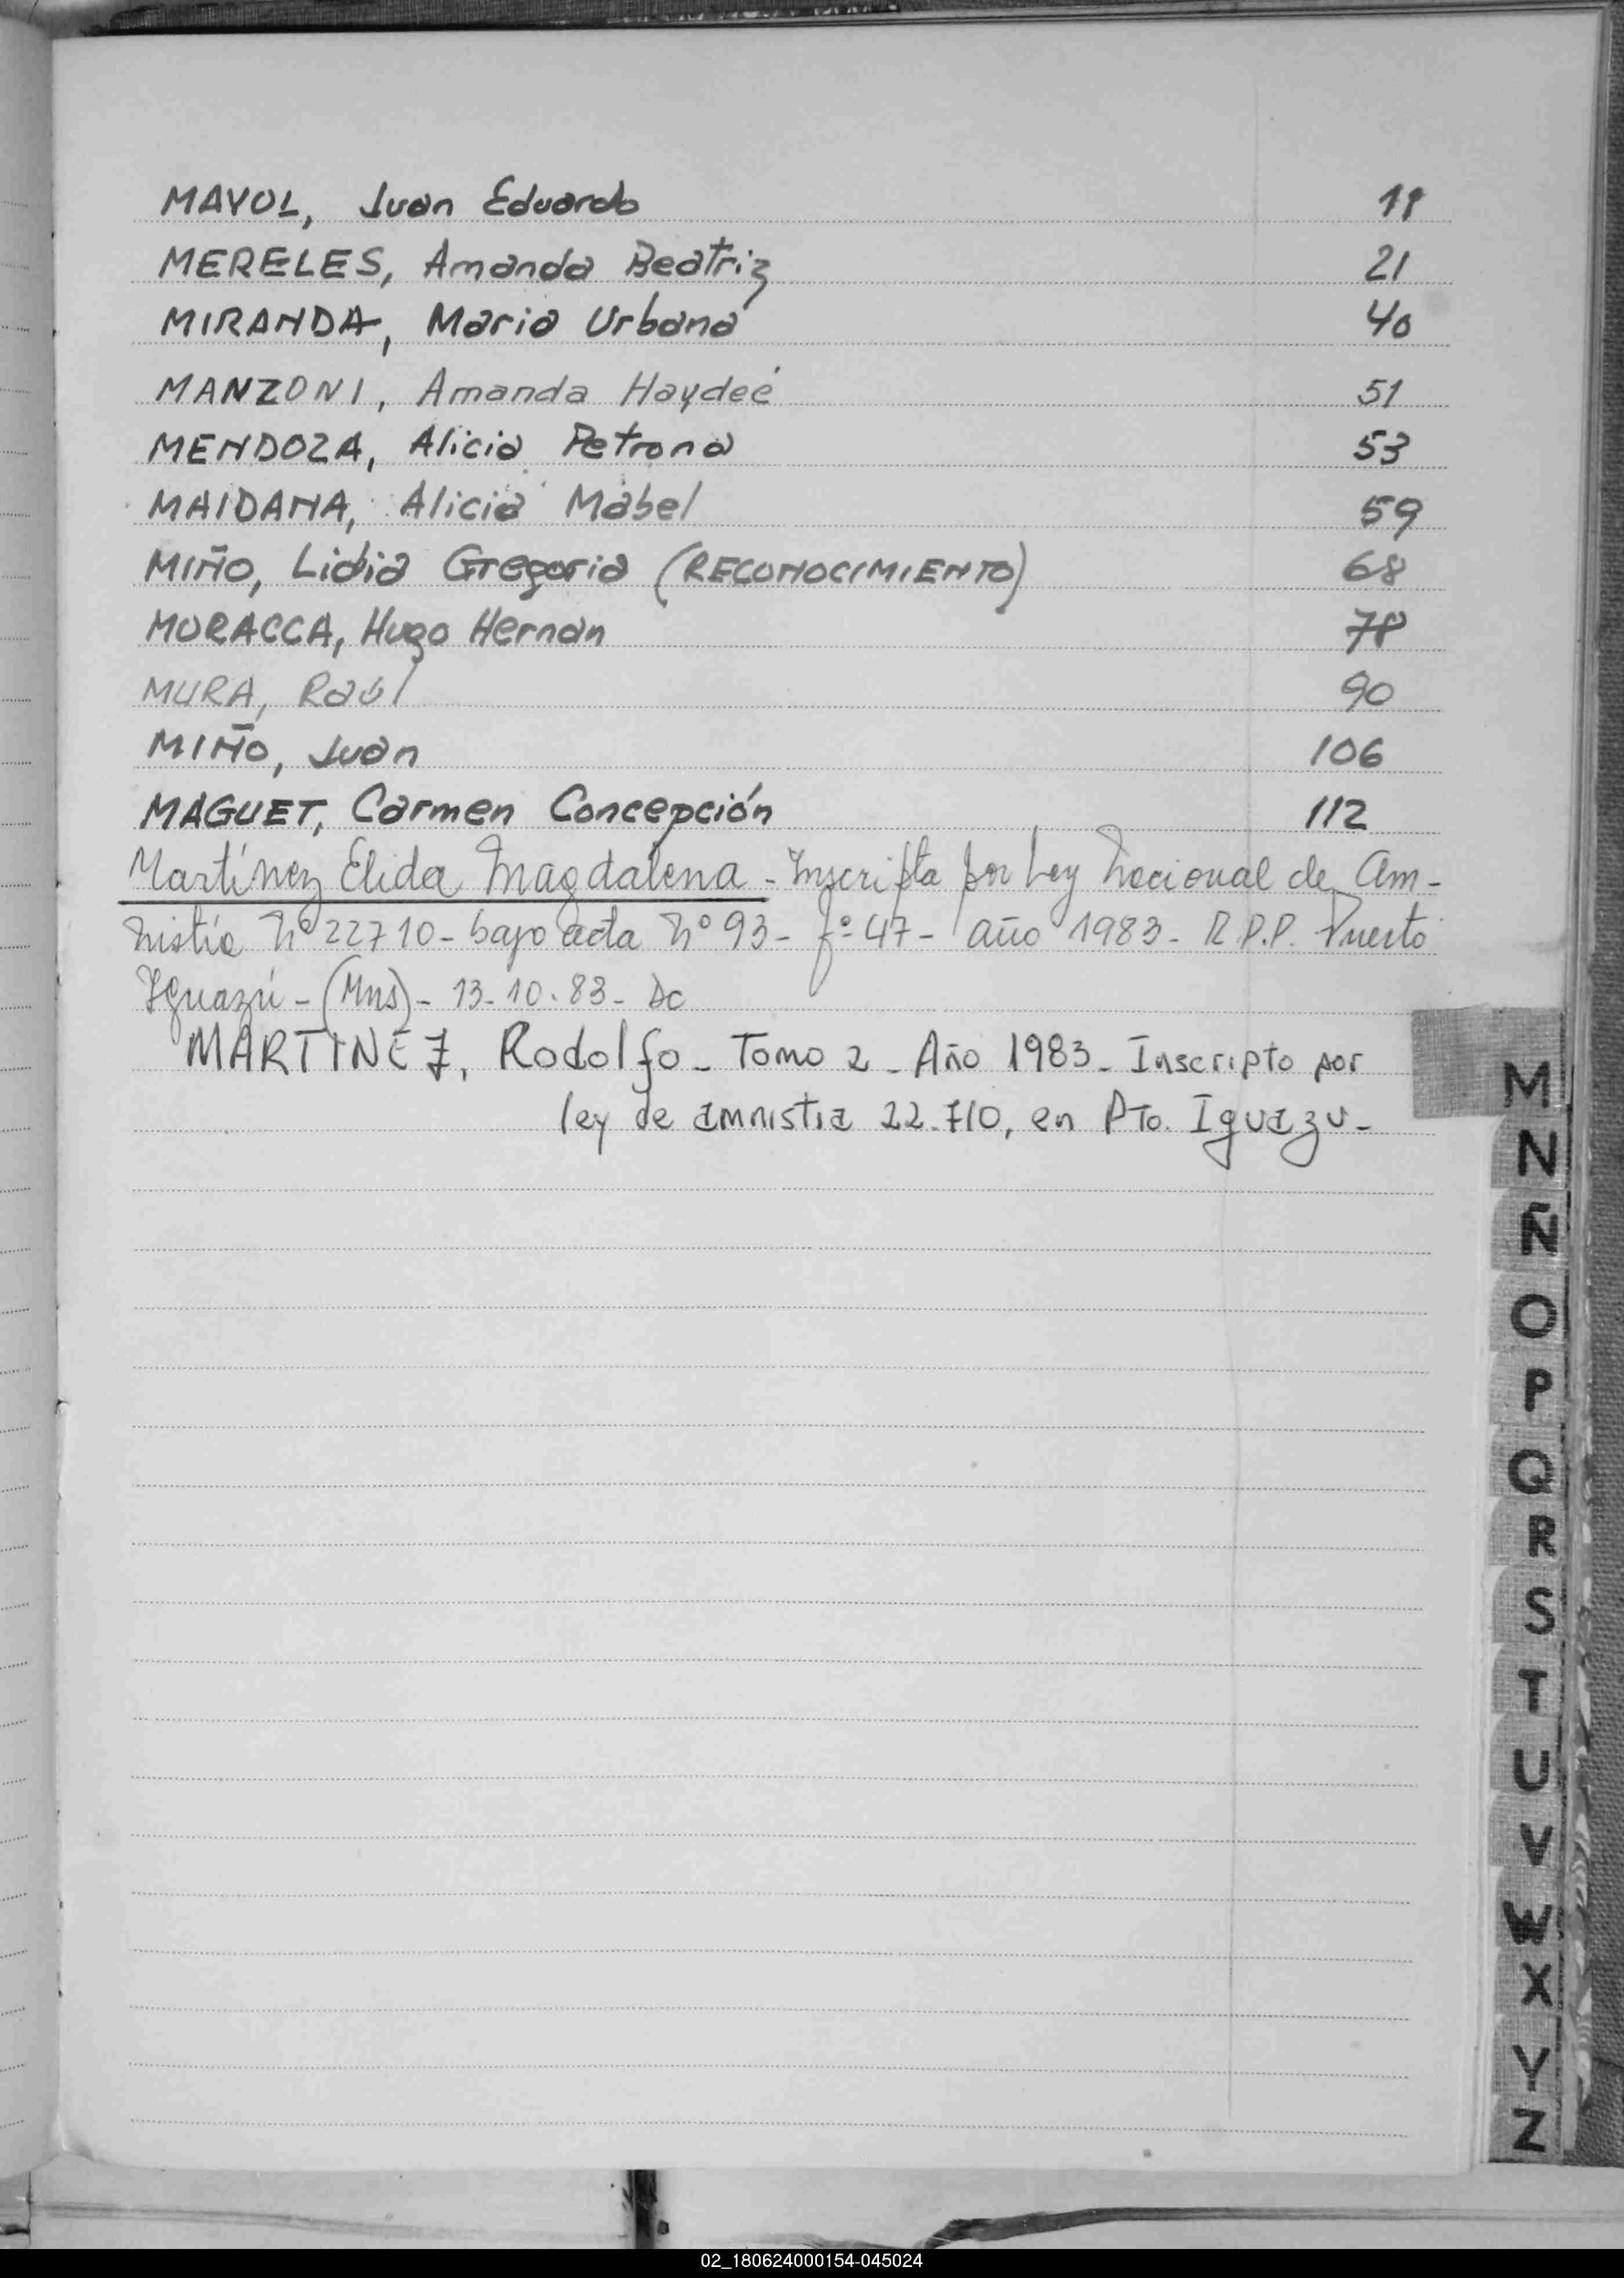 MAYOL, Juan Eduardo 11
MERELES, Amanda Beatriz 21
MIRANDA, Maria Urbana 40
MANZONI, Amanda Haydeé 51
MENDOZA, Alicia Petrona 53
MAIDANA, Alicia Mabel 59
MIÑO, Lidia Gregoria (RECONOCIMIENTO) 68
MORACCA, Hugo Hernan 78
MURA, Raúl 90
MIÑO, Juan 106
MAGUET, Carmen Concepción 112
Martínez Elida Magdalena - Inscripta por Ley Nacional de Am-
nistía Nº 22710 - bajo acta Nº 93 - fº 47 - año 1983 - R.P.P. Puerto
Iguazú - (Mns) - 13-10-83 - Dc
MARTINEZ, Rodolfo - Tomo 2 - Año 1983 - Inscripto por
ley de amnistia 22.710, en Pto. Iguazu -
M
N
Ñ
O
P
Q
R
S
T
U
V
W
X
Y
Z
02_180624000154-045024